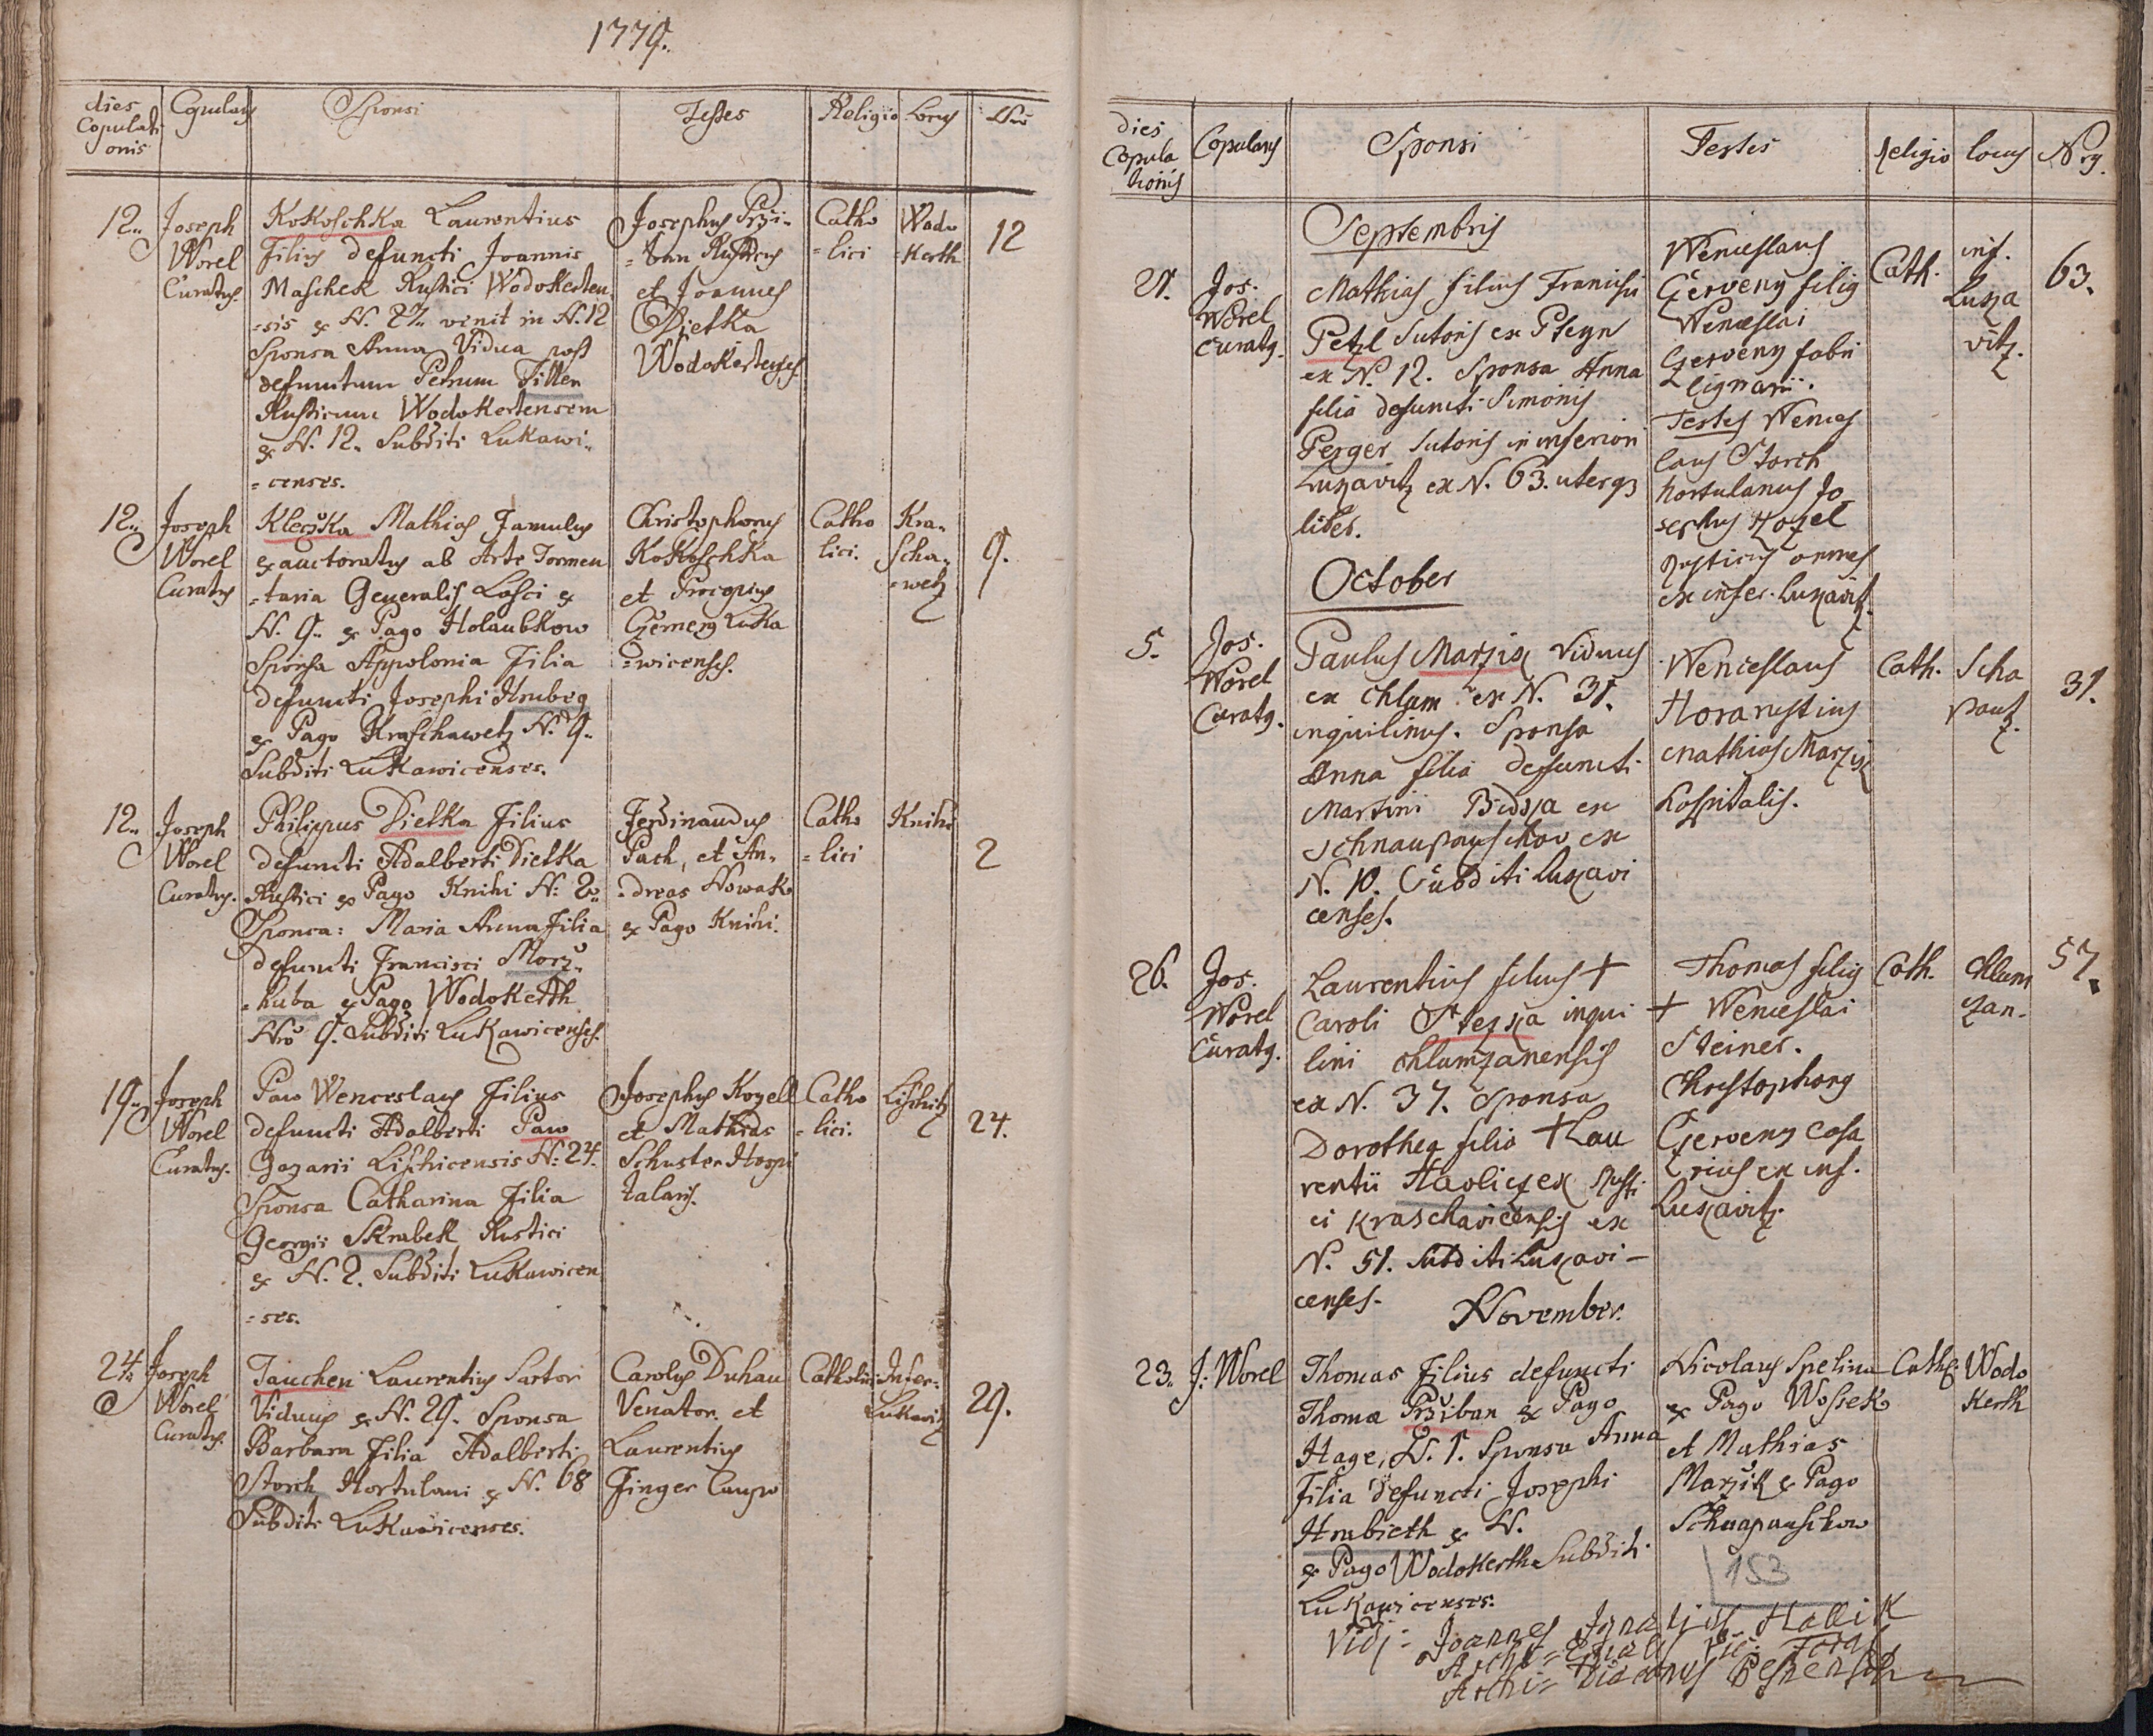 1779.
dies Copulationis
Copulans
Sponsi
Testes
Religio
Locus
Nro
12.
Joseph
Worel
Curatus.
Kokoschka Laurentius
Filius defuncti Joannis
Maschek Rustici Wodokerten
=sis ex N. 27. venit in N. 12
Sponsa Anna Vidua post
defunctum Petrum Titten
Rusticum Wodokertensem
ex N. 12. Subditi Lukawi=
=censes.
Josephus Przi=
=ban Rusticus
et Joannes
Dietka
Wodokertenses
Catho
=lici
Wodo
=Kerth
12
12.
Joseph
Worel
Curatus
Kleczka Mathias Famulus
exauctoratus ab Arte Tormen
=taria Generalis Lasci ex
N. 9. ex Pago Holaubkow
Sponsa Appolonia Filia
defuncti Josephi Hrubeg
ex Pago Kraschawetz N. 9.
Subditi Lukawicenses.
Christophorus
Kokoschka
et Procopius
Czerneg Luka
=wicenses.
Catho
lici.
Kra=
scha=
=wetz
9.
12.
Joseph
Worel
Curatus.
Philippus Dietka Filius
defuncti Adalberti Dietka
Rustici ex Pago Knihi N: 2.
Sponsa: Maria Anna Filia
defuncti Francisci Morz=
=huba ex Pago Wodokerth
Nro 9. Subditi Lukawicenses.
Ferdinandus
Pach, et An=
=dreas Nowak
ex Pago Knihi.
Catho
=lici
Knihi
2
19.
Joseph
Worel
Curatus.
Paw Wenceslaus Filius
defuncti Adalberti Paw
Gazarii Lischicensis N: 24.
Sponsa Catharina Filia
Georgii Skrabek Rustici
ex N. 2. Subditi Lukawicen
=ses.
Josephus Kozell
et Mathias
Schuster Hospi
talaris.
Catho
=lici.
Lischitz
24.
24.
Joseph
Worel
Curatus.
Tauchen Laurentius Sartor
Viduus ex N. 29. Sponsa
Barbara Filia Adalberti
Storch Hortulani ex N. 68
Subditi Lukawicenses.
Carolus Duhan
Venator et
Laurentius
Finger Caupo
Catholici
Infer:
Lukawitz
29.
dies
Copula
tionis
Copulans
Sponsi
Testes
Religio
locus
Nrus.
Septembris
21.
Jos.
Worel
Curatus.
Mathias filius Francisci
Petzl Sutoris ex Pteyn
ex N. 12. Sponsa Anna
filia defuncti Simonis
Perger Sutoris in inferiori
Lukavitz ex N. 63. uterque
liber.
Wenceslaus
Czerveny filius
Wenceslai
Czerveny fabri
lignarii.
Testes Wences
laus Storch
hortulanus Jo
sephus Kozel
rusticus omnes
ex infer. Lukavitz.
Cath.
inf.
Luka
vitz.
63.
October
5.
Jos.
Worel
Curatus.
Paulus Marzik viduus
ex Chlum ex N. 31.
inquilinus. Sponsa
Anna filia defuncti
Martini Bidda ex
Schnaupauschov ex
N. 10. Subditi Lukavi
censes.
Wenceslaus
Hora rusticus
Mathias Marzik
hospitalis.
Cath.
31.
26.
Jos.
Worel
Curatus.
Laurentius filius †
Caroli Steska inqui
lini Chlumzanensis
ex N. 37. Sponsa
Dorothea filia † Lau
rentii Havliczek Rusti
ci Kraschavicensis ex
N. 51. Subditi Lukavi-
censes.
Thomas filius
† Wenceslai
Steiner.
Christophorus
Czerveny Casa
rius ex inf.
Lukavitz.
Cath.
Chlum
zan.
57.
November.
23.
J: Worel
Thomas Filius defuncti
Thomæ Przziban ex Pago
Hage, N. 1. Sponsa Anna
Filia defuncti Josephi
Hrubieth ex N.
ex Pago Wodokerth Subditi
Lukawicenses.
Nicolaus Spelina
ex Pago Wossek
et Mathias
Marzik ex Pago
Schnapauschow
Cath:
Wodo
Kerth
153
Vidi: Joannes Ignatius Hallik